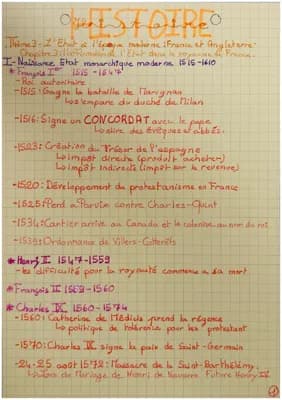 HISTOIRE
Thème 3 - L'Etat à l'époque moderne : France et Angleterre
l'Etat dans le royaume de France
I - Naissance Etat monarchique moderne 1515-1610
* François Ier 1515 - 1547
- Roi autoritaire
- 1515 : Gagne la bataille de Marignan
↳ s'empare du duché de Milan
- 1516 : Signe un CONCORDAT avec le pape
↳ élire des évêques et abbés.
- 1523 : Création du Trésor de l'espagne
↳ impôt directe (produit acheter)
↳ impôt indirecte (impôt sur le revenue)
- 1520 : Développement du protestantisme en France
- 1525 : Perd à Parvie contre Charles-Quint
- 1534 : Cartier arrive au Canada et la colonise au nom du roi
- 1539 : Ordonnance de Villers-Cotterêts
* Henri II 1547-1559
- les difficulté pour la royauté commence à sa mort
* François II 1559-1560
* Charles IX 1560-1574
- 1560 : Catherine de Médicis prend la régence
↳ politique de tolérence pour les protestant
- 1570 : Charles IX signe la paix de Saint-Germain
- 24-25 août 1572 : Massacre de la Saint-Barthélémy
↳ Mariage de Henri de Navarre Future Henry IV
1